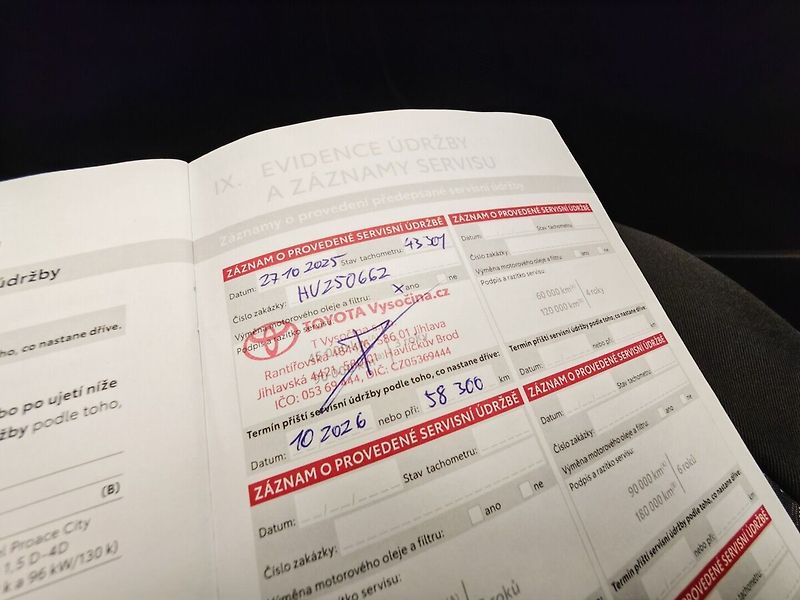 údržby
ho, co nastane dříve.
bo po ujetí níže
žby podle toho,
(B)
el Proace City
1,5 D-4D
k a 96 kW/130 k)
IX. EVIDENCE ÚDRŽBY
A ZÁZNAMY SERVISU
Záznamy o provedení předepsané servisní údržby
ZÁZNAM O PROVEDENÉ SERVISNÍ ÚDRŽBĚ
Datum: 27 10 2025 Stav tachometru: 43 301
Číslo zakázky: HV250662
Výměna motorového oleje a filtru: x ano ne
Podpis a razítko servisu:
TOYOTA Vysočina.cz
T Vysočina
Rantířovská 586 01 Jihlava
Jihlavská Havlíčkův Brod
IČO: 053 69 444, DIČ: CZ05369444
Termín příští servisní údržby podle toho, co nastane dříve:
Datum: 10 2026 nebo při: 58 300 km
ZÁZNAM O PROVEDENÉ SERVISNÍ ÚDRŽBĚ
Datum: Stav tachometru:
Číslo zakázky:
Výměna motorového oleje a filtru: ano ne
Podpis a razítko servisu:
roků
ZÁZNAM O PROVEDENÉ SERVISNÍ ÚDRŽBĚ
Datum: Stav tachometru:
Číslo zakázky:
Výměna motorového oleje a filtru: ano ne
Podpis a razítko servisu:
60 000 km 4 roky
120 000 km
Termín příští servisní údržby podle toho, co nastane dříve:
Datum: nebo při: km
ZÁZNAM O PROVEDENÉ SERVISNÍ ÚDRŽBĚ
Datum: Stav tachometru:
Číslo zakázky:
Výměna motorového oleje a filtru: ano ne
Podpis a razítko servisu:
90 000 km 6 roků
180 000 km
Termín příští servisní údržby podle toho, co nastane dříve:
Datum: nebo při: km
PROVEDENÉ SERVISNÍ ÚDRŽBĚ
Stav tachometru: